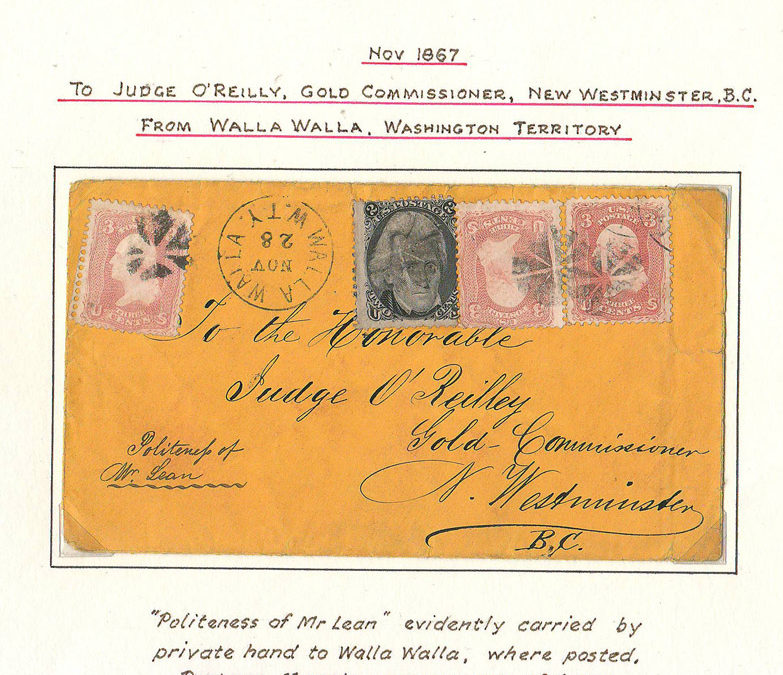 Nov 1867
To Judge O'Reilly, Gold Commissioner, New Westminster, B.C.
From Walla Walla, Washington Territory
3 U.S. POSTAGE 3
THREE
U CENTS S
WALLA WALLA W.TY.
NOV
28
2 U.S. POSTAGE 2
U TWO CENTS S
3 U.S. POSTAGE 3
U THREE CENTS S
3 U.S. POSTAGE 3
U THREE CENTS S
To the Honorable
Judge O'Reilley
Gold-Commissioner
N. Westminster
B.C.
Politeness of
Mr. Lean
"Politeness of Mr Lean" evidently carried by
private hand to Walla Walla, where posted.